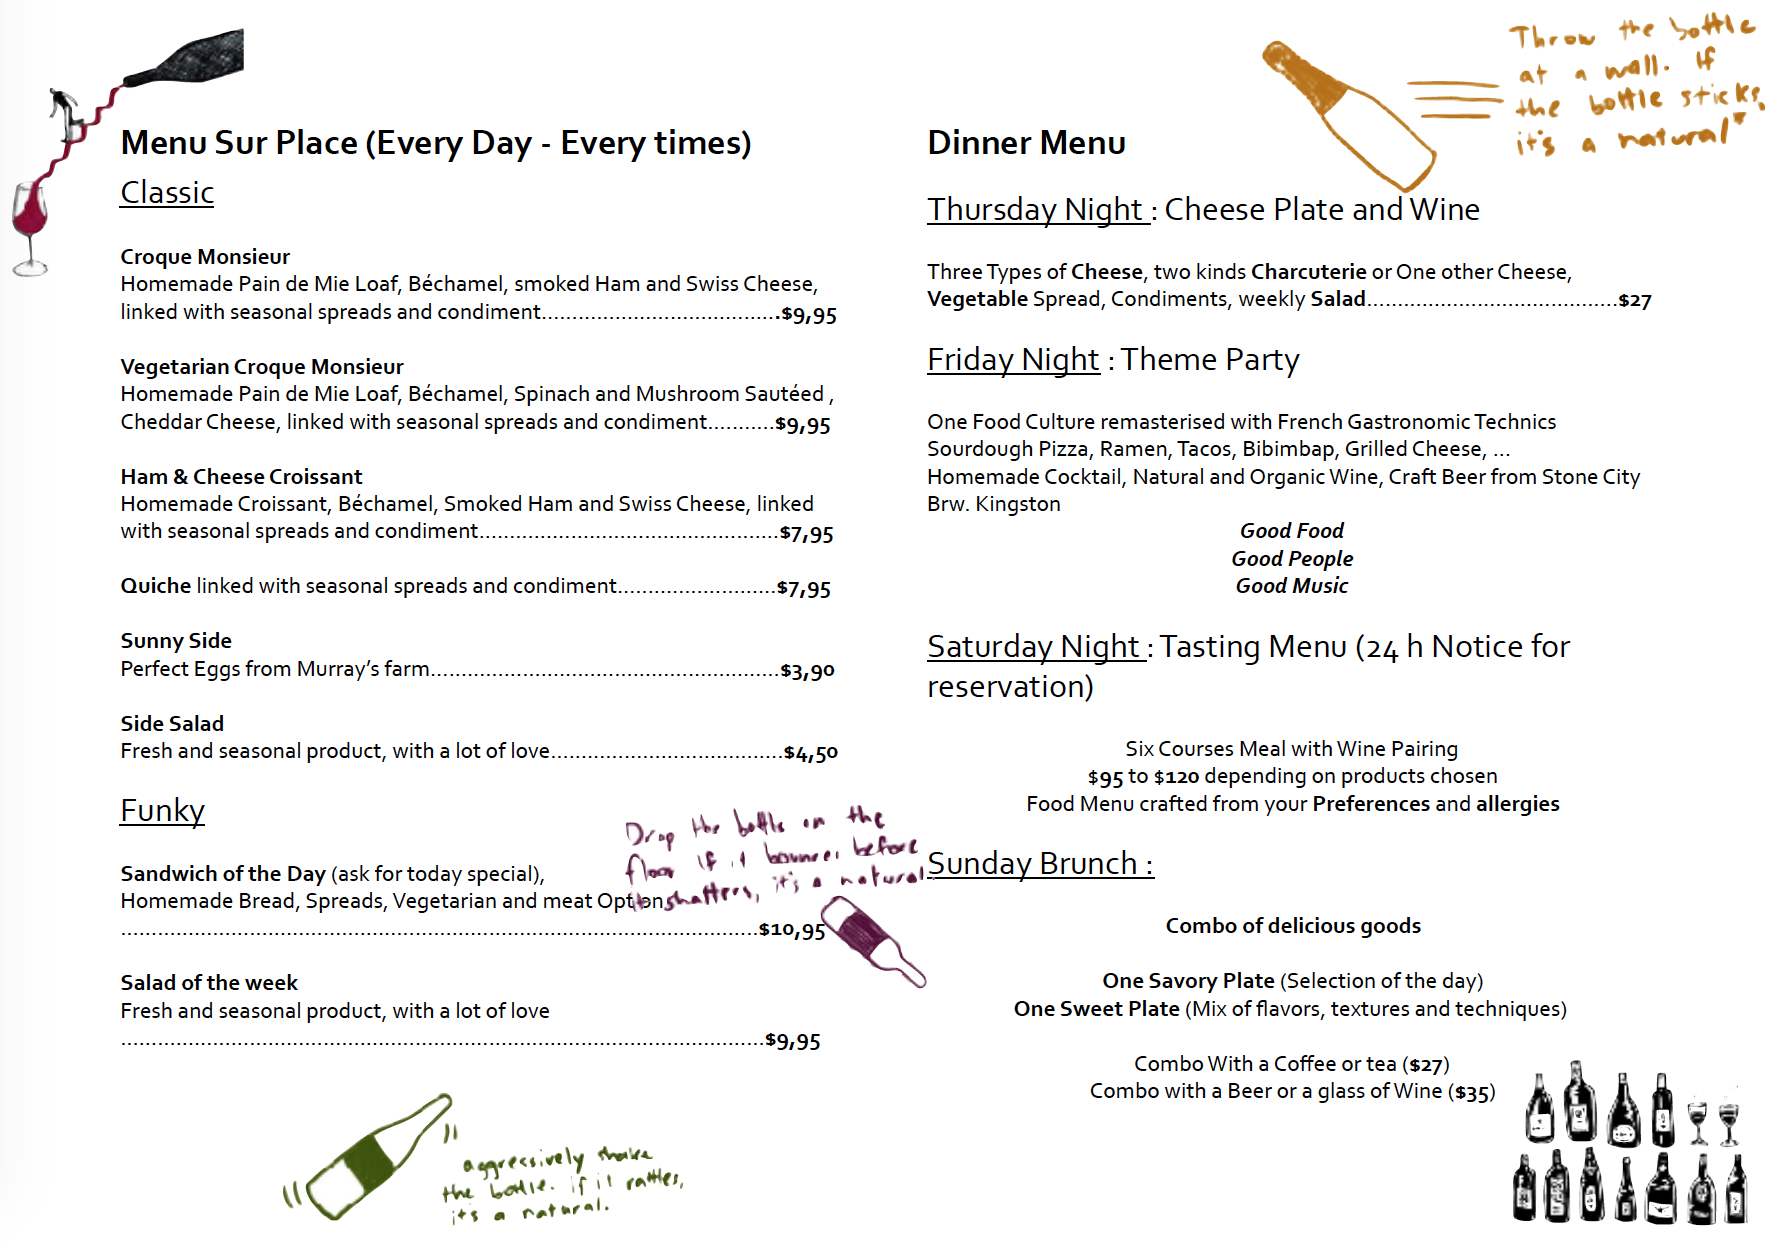 Menu Sur Place (Every Day - Every times)
Classic
Croque Monsieur
Homemade Pain de Mie Loaf, Béchamel, smoked Ham and Swiss Cheese,
linked with seasonal spreads and condiment.......................................$9,95
Vegetarian Croque Monsieur
Homemade Pain de Mie Loaf, Béchamel, Spinach and Mushroom Sautéed ,
Cheddar Cheese, linked with seasonal spreads and condiment...........$9,95
Ham & Cheese Croissant
Homemade Croissant, Béchamel, Smoked Ham and Swiss Cheese, linked
with seasonal spreads and condiment.................................................$7,95
Quiche linked with seasonal spreads and condiment..........................$7,95
Sunny Side
Perfect Eggs from Murray's farm.........................................................$3,90
Side Salad
Fresh and seasonal product, with a lot of love......................................$4,50
Funky
Sandwich of the Day (ask for today special),
Homemade Bread, Spreads, Vegetarian and meat Option
........................................................................................................$10,95
Salad of the week
Fresh and seasonal product, with a lot of love
.........................................................................................................$9,95
Drop the bottle on the
floor If it bounces before
it shatters, it's a natural.
aggressively shake
the bottle. if it rattles,
it's a natural.
Throw the bottle
at a wall. If
the bottle sticks,
it's a natural"
Dinner Menu
Thursday Night : Cheese Plate and Wine
Three Types of Cheese, two kinds Charcuterie or One other Cheese,
Vegetable Spread, Condiments, weekly Salad.........................................$27
Friday Night : Theme Party
One Food Culture remasterised with French Gastronomic Technics
Sourdough Pizza, Ramen, Tacos, Bibimbap, Grilled Cheese, ...
Homemade Cocktail, Natural and Organic Wine, Craft Beer from Stone City
Brw. Kingston
Good Food
Good People
Good Music
Saturday Night : Tasting Menu (24 h Notice for
reservation)
Six Courses Meal with Wine Pairing
$95 to $120 depending on products chosen
Food Menu crafted from your Preferences and allergies
Sunday Brunch :
Combo of delicious goods
One Savory Plate (Selection of the day)
One Sweet Plate (Mix of flavors, textures and techniques)
Combo With a Coffee or tea ($27)
Combo with a Beer or a glass of Wine ($35)